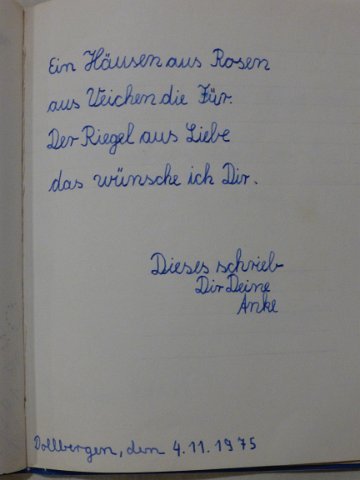 Ein Häusen aus Rosen
aus Veichen die Für.
Der Riegel aus Liebe
das wünsche ich Dir.
Dieses schrieb
Dir Deine
Anke
Dollbergen, den 4.11.1975